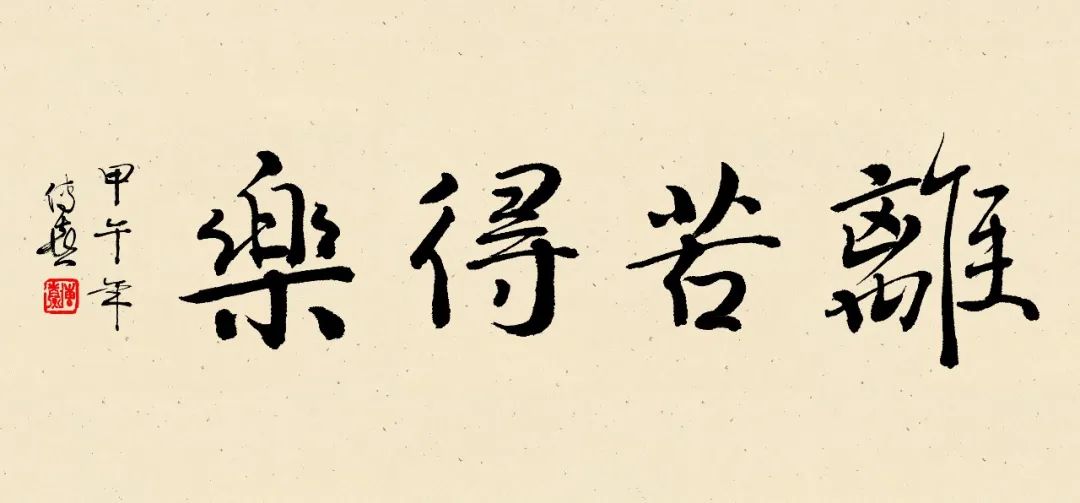 離苦得樂
甲午年
傳喜